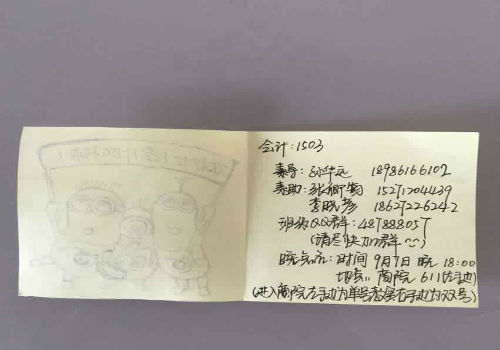 会计:1503
素导:孙华远 18986166102
素助:张 15271204439
李晓彦 18627226242
班级QQ群:487888057
(请尽快加群~~)
晚点:时间 9月7日 晚 18:00
地点:商院 611(左手边)
(进入商院左手边为单号教室右手边为双号)